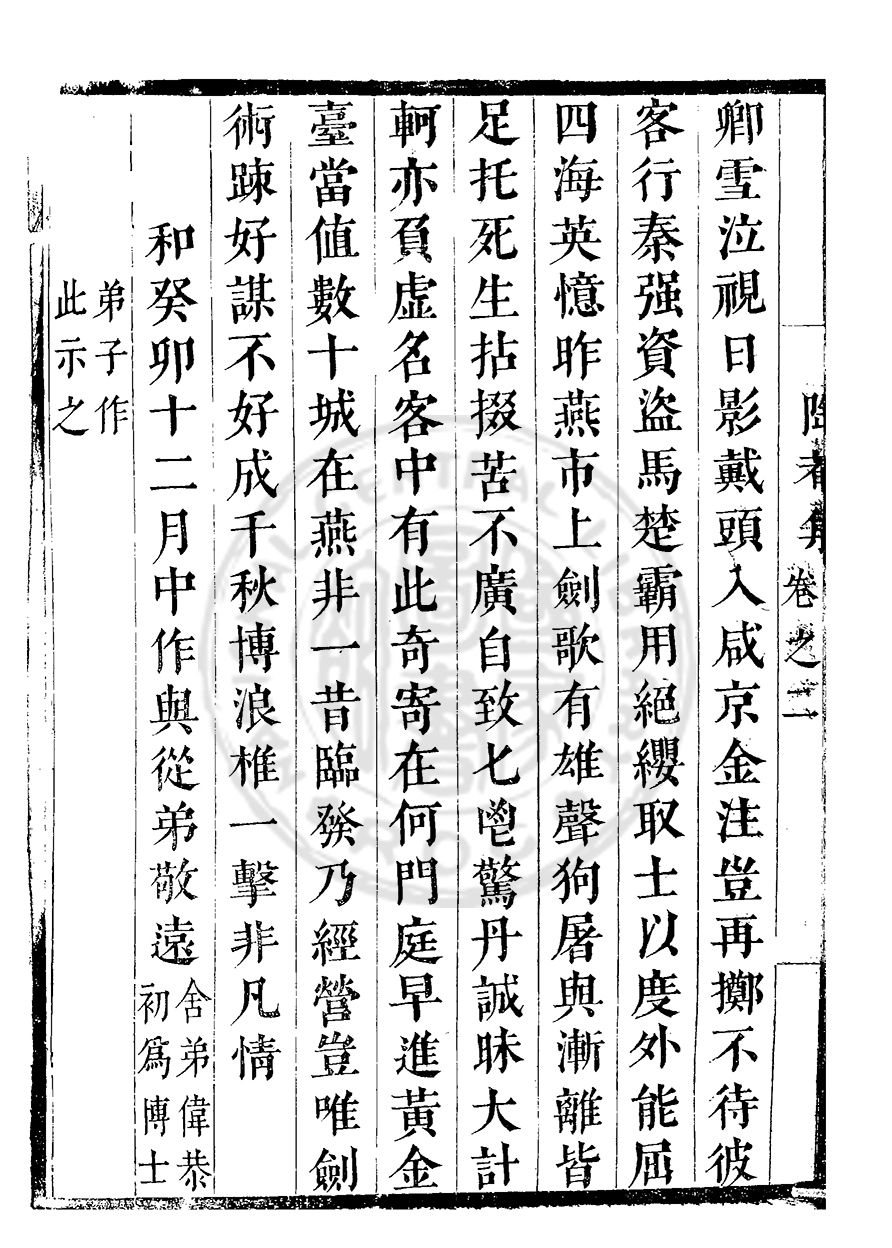 陶者集 卷之二
卿雪泣視日影戴頭入咸京金注豈再擲不待彼
客行秦强資盜馬楚霸用絕纓取士以度外能屈
四海英憶昨燕市上劍歌有雄聲狗屠與漸離皆
足托死生拈掇苦不廣自致七鬯驚丹誠昧大計
軻亦負虛名客中有此奇寄在何門庭早進黃金
臺當值數十城在燕非一昔臨發乃經營豈唯劍
術踈好謀不好成千秋博浪椎一擊非凡情
和癸卯十二月中作與從弟敬遠
舍弟偉恭
初爲博士
弟子作
此示之